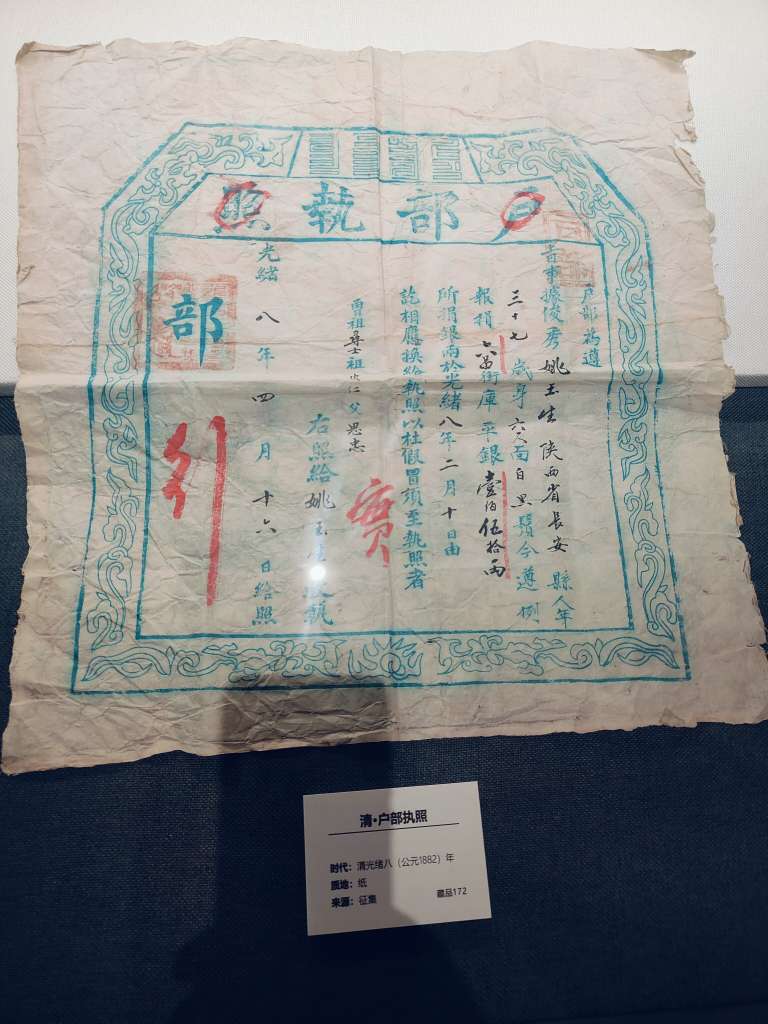 户部執照
户部為遵
旨事據俊秀姚玉生陕西省長安縣人年
三十七歲身面白黑鬚今遵例
報捐銜庫平銀壹佰伍拾兩
所捐銀兩於光緒八年二月十日由
訖相應換給執照以杜假冒須至執照者
曾祖尋士祖父思忠
實
右照給姚玉收執
光緒八年四月十六日給照
部
引
清·户部执照
时代：清光绪八（公元1882）年
质地：纸
来源：征集
藏品172